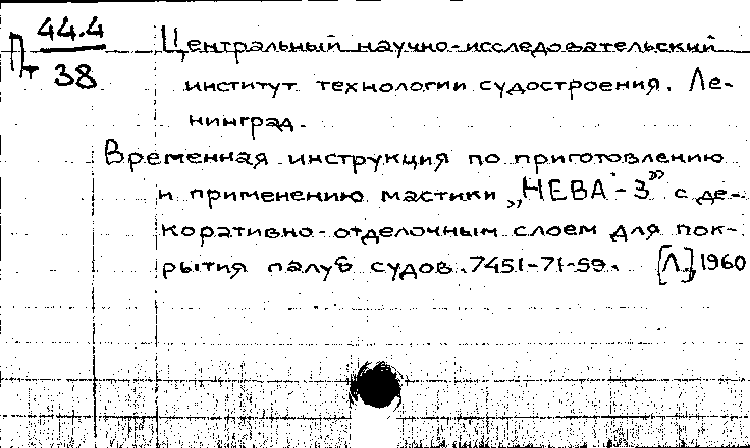 Пт 44.4
38
Центральный научно-исследовательский
институт технологии судостроения. Ле-
нинград.
Временная инструкция по приготовлению
и применению мастики „НЕВА-3" с де-
коративно-отделочным слоем для пок-
рытия палуб судов. 7451-71-59. [Л.], 1960